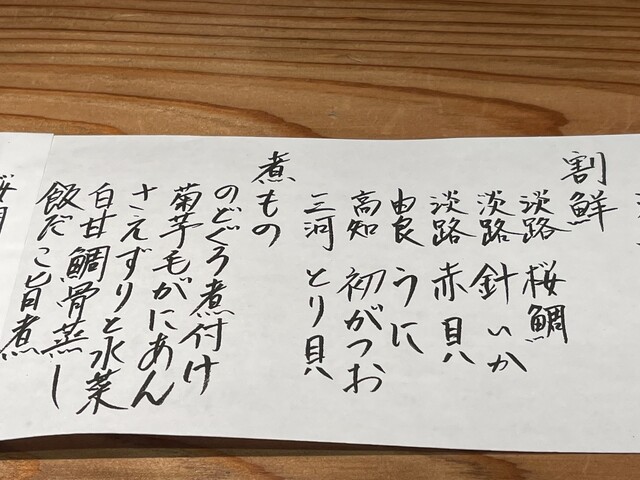 割鮮
淡路 桜鯛
淡路 針いか
淡路 赤貝
由良 うに
高知 初がつお
三河 とり貝
煮もの
のどぐろ煮付け
菊芋毛がにあん
さえずりと水菜
白甘鯛骨蒸し
飯だこ旨煮